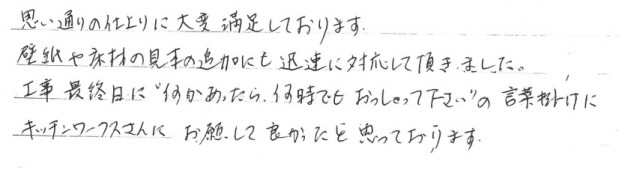 思い通りの仕上りに大変満足しております.
壁紙や床材の見本の追加にも迅速に対応して頂きました。
工事最終日に"何かあったら、何時でもおっしゃって下さい"の言葉掛けに
キッチンワークスさんにお願して良かったと思っております.